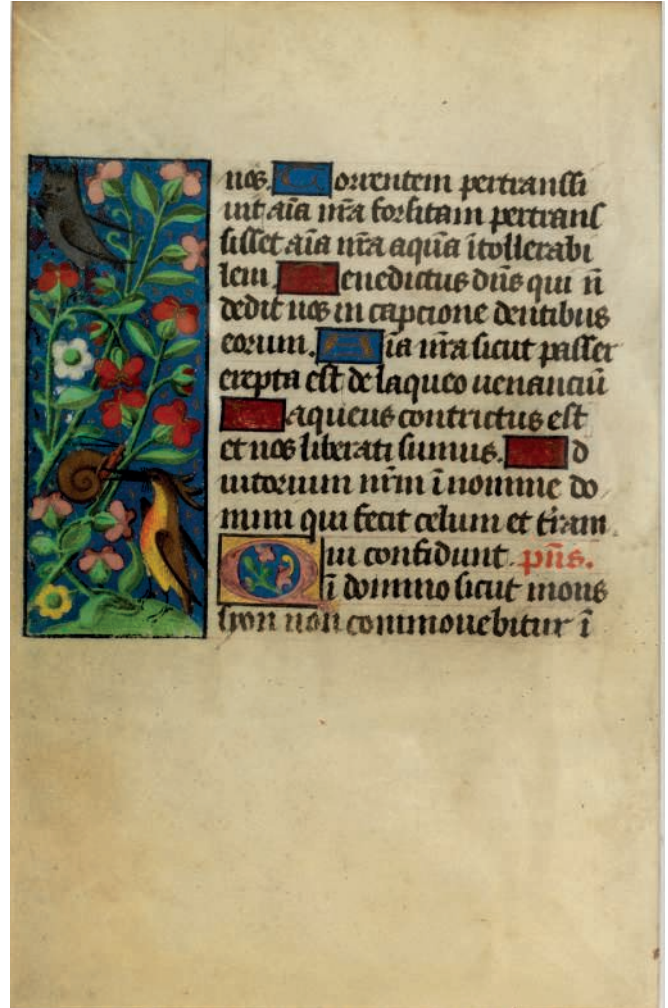 nos. Torrentem pertransi
uit aīa nr̄a forsitam pertrans
sisset aīa nr̄a aquā ītollerabi
lem. Benedictus dn̄s qui n̄
dedit nos in capcione dentibus
eorum. Aīa nr̄a sicut passer
erepta est de laqueo uenanciū
Laqueus contrictus est
et nos liberati sumus. Ad
iutorium nr̄m ī nomine do
mini qui fecit celum et tr̄am.
Qui confidunt. ps̄.
ī domino sicut mons
syon non commouebitur ī